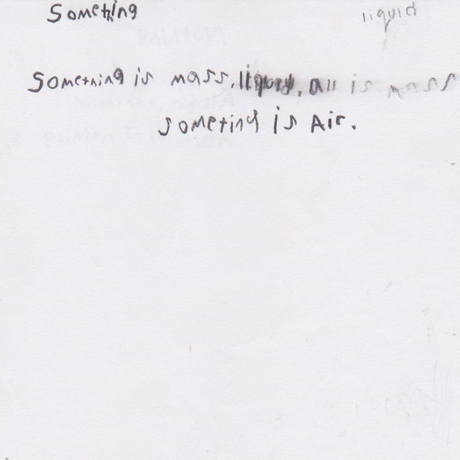 Something
liquid
Something is mass, liquid, all is mass
someting is Air.